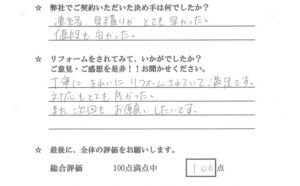 ☆ 弊社でご契約いただいた決め手は何でしたか?
連絡、見積りが とても早かった。
値段も良かった。
☆ リフォームをされてみて、いかがでしたか?
ご意見・ご感想を是非!!お聞かせください。
丁寧に きれいに リフォームされていて満足です。
対応もとても良かった。
また 次回も お願いしたいです。
☆ 最後に、全体の評価をお願いします。
総合評価 100点満点中 100点